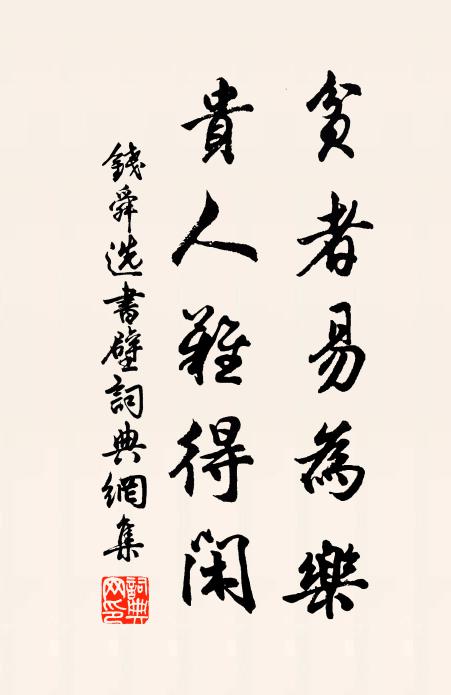 貧者易為樂
貴人難得閑
錢舜选書壁詞典網集
詞典網印